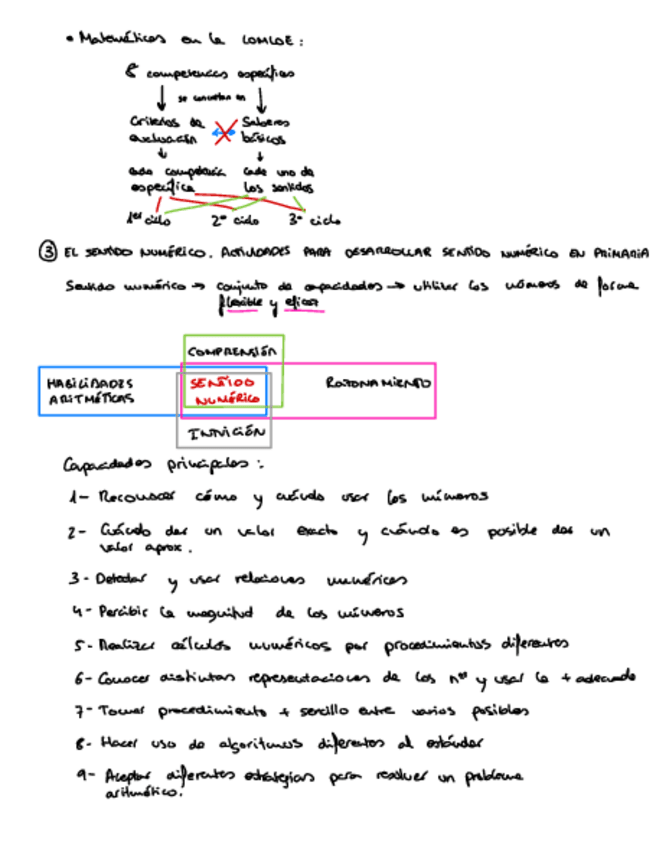 • Matemáticas en la LOMLOE:
8 competencias específicas
se concretan en
Criterios de evaluación
Saberes básicos
cada competencia específica
cada uno de los sentidos
1er ciclo 2º ciclo 3º ciclo
③ EL SENTIDO NUMÉRICO. ACTIVIDADES PARA DESARROLLAR SENTIDO NUMÉRICO EN PRIMARIA
Sentido numérico → conjunto de capacidades → utilizar los números de forma
flexible y eficaz
COMPRENSIÓN
HABILIDADES ARITMÉTICAS
SENTIDO NUMÉRICO
RAZONAMIENTO
INTUICIÓN
Capacidades principales:
1- Reconocer cómo y cuándo usar los números
2- Cuándo dar un valor exacto y cuándo es posible dar un
valor aprox.
3- Detectar y usar relaciones numéricas
4- Percibir la magnitud de los números
5- Realizar cálculos numéricos por procedimientos diferentes
6- Conocer distintas representaciones de los nos y usar la + adecuada
7- Tomar procedimiento + sencillo entre varios posibles
8- Hacer uso de algoritmos diferentes al estándar
9- Aceptar diferentes estrategias para resolver un problema
aritmético.